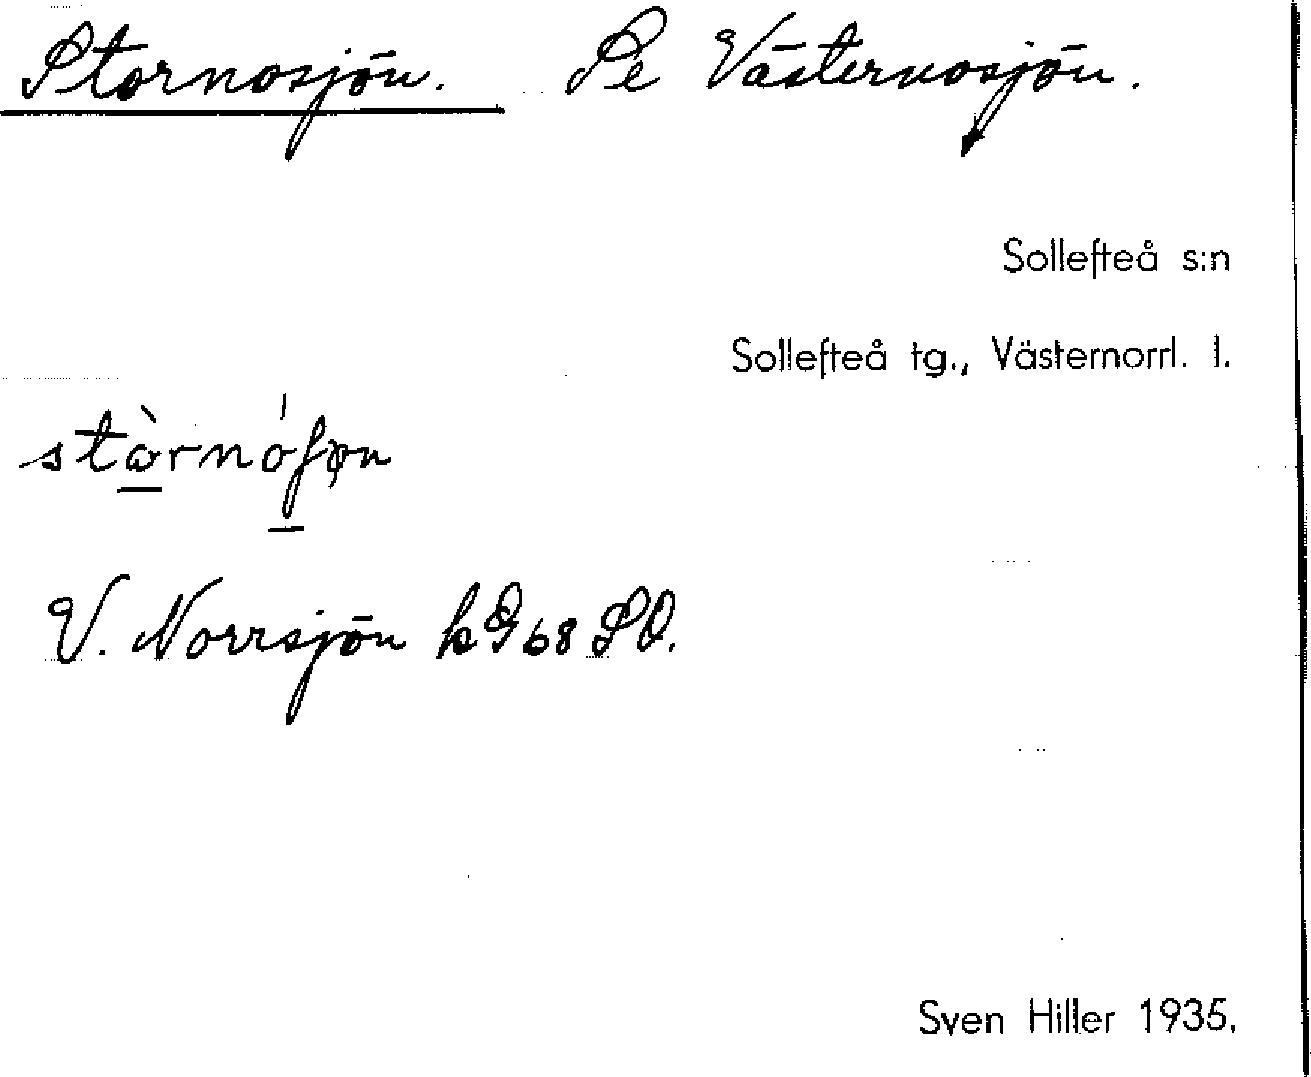 Stornosjön. Se Västernosjön.
Sollefteå s:n
Sollefteå tg., Västernorrl. l.
V. Norrsjön hG68 SO.
Sven Hiller 1935.